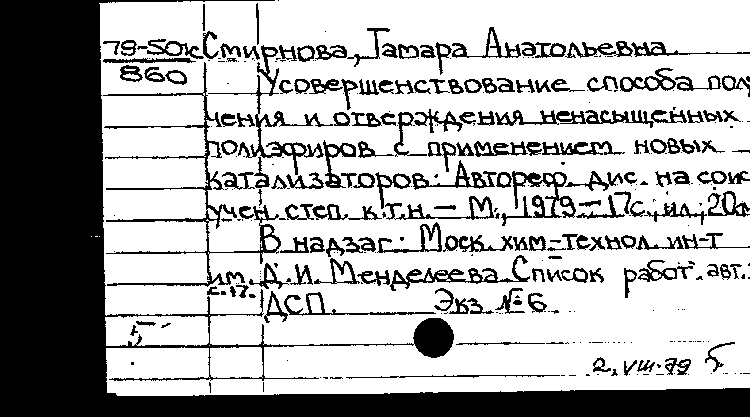 79-50к Смирнова, Тамара Анатольевна.
860
Усовершенствование способа полу
чения и отверждения ненасыщенных
полиэфиров с применением новых
катализаторов: Автореф. дис. на соис
учен. степ. к.т.н. — М., 1979 — 17с.; ил.; 20
В надзаг: Моск. хим.-технол. ин-т
им. Д.И. Менделеева. Список работ. авт.:
с. 17.
ДСП. Экз №6.
5
2.VIII.79